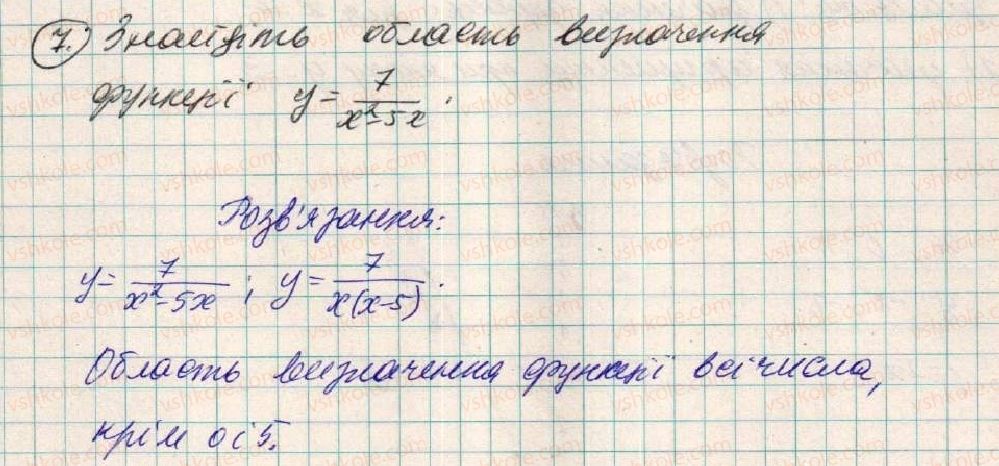 7. Знайдіть область визначення
функції y = 7/(x²-5x).
Розв'язання:
y = 7/(x²-5x); y = 7/(x(x-5)).
Область визначення функції всі числа,
крім 0 і 5.